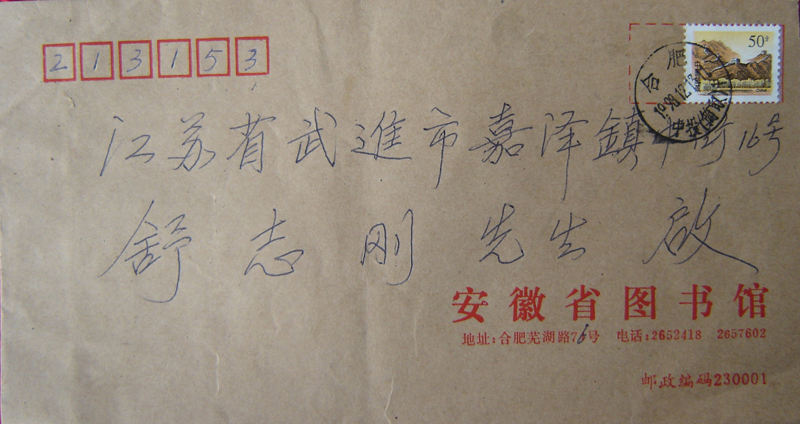 213153
50分
合肥
1998.12.13
江苏省武進市嘉泽鎮 街16号
舒志刚先生啟
安徽省图书馆
地址:合肥芜湖路76号 电话:2652418 2657602
邮政编码230001